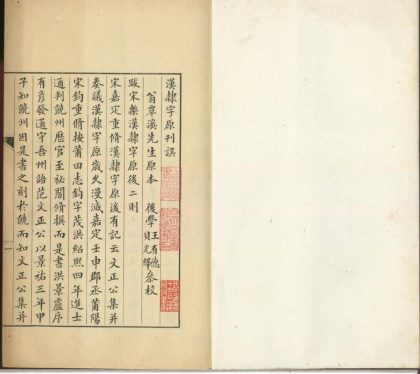 漢隸字原刊誤
翁覃溪先生原本　後學王有德
貝光鐸
恭校
跋宋槧漢隸字原後二則
宋嘉定重脩漢隸字原後有記云文正公集并
奏議漢隸字原歲久漫滅嘉定壬申郡丞莆陽
宋鈞重脩按莆田志鈞字茂洪紹熙四年進士
通判饒州歷官至祕閣脩撰而是書洪景盧序
有彥發通守吾州語范文正公以景祐三年甲
子知饒州因是書之刻於饒而知文正公集并